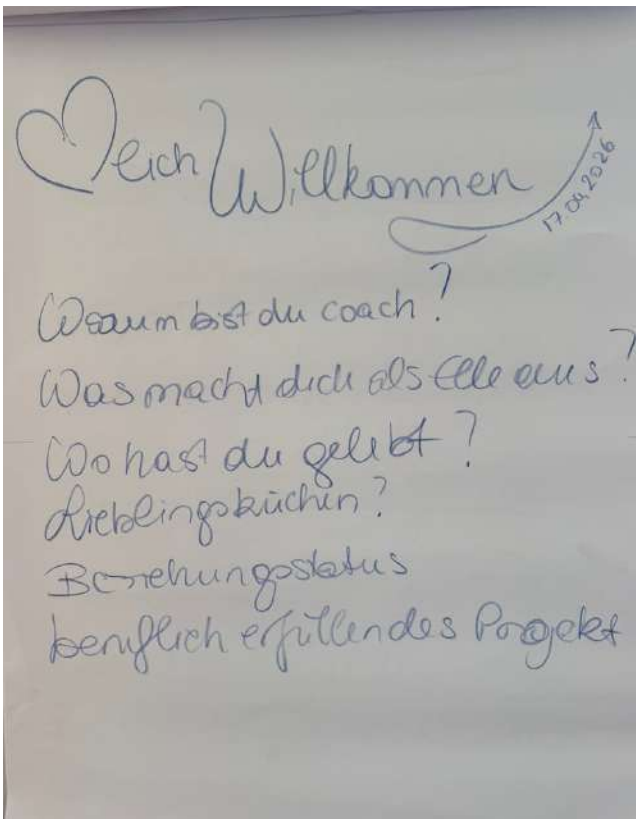 ♡lich Willkommen
17.04.2026
Warum bist du coach?
Was macht dich als Elle aus?
Wo hast du gelebt?
Lieblingskuchin?
Beziehungsstatus
beruflich erfüllendes Projekt